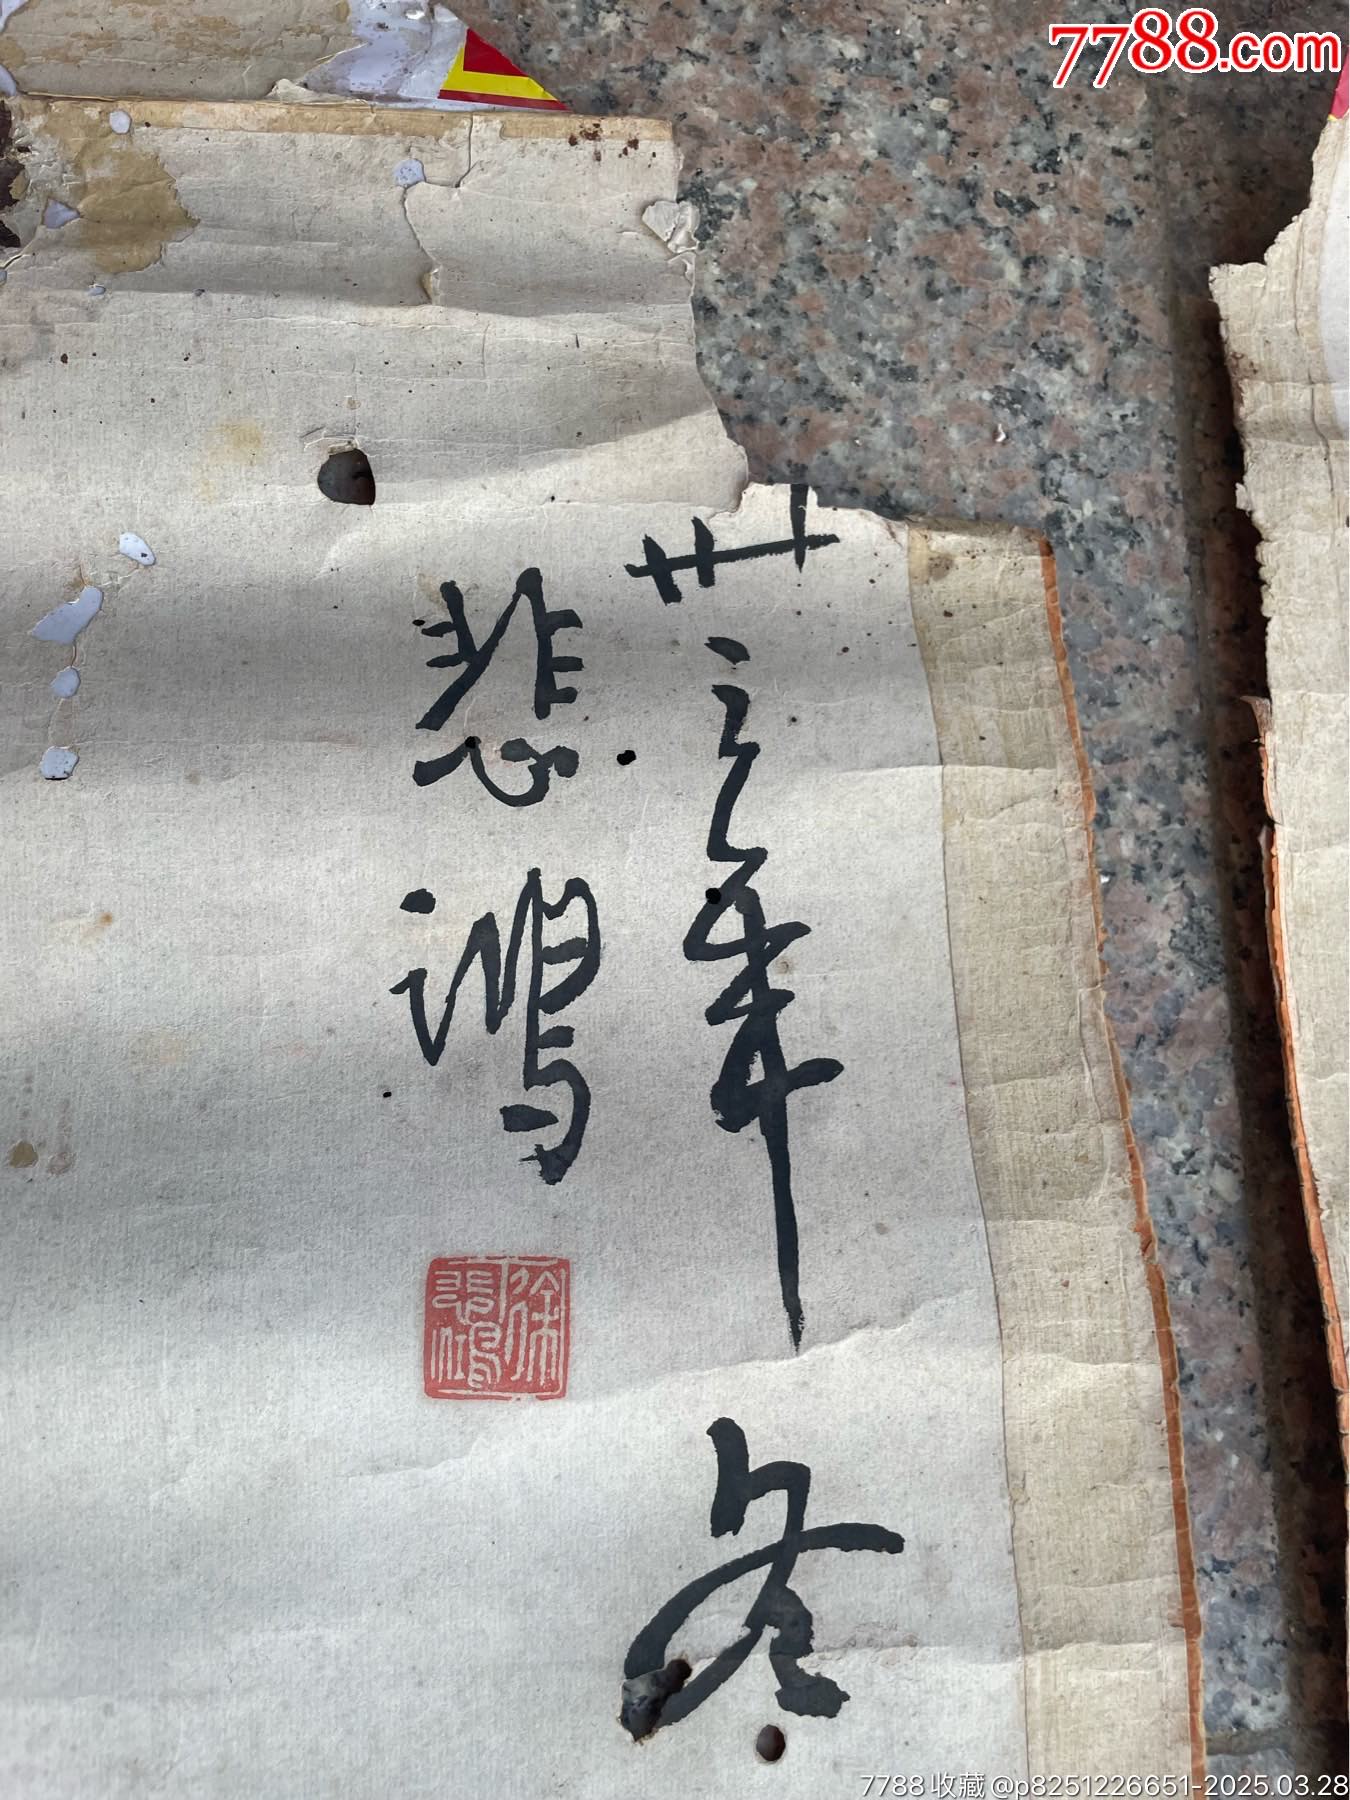 7788.com
卅三年冬
悲鸿
徐悲鸿
7788收藏 @p8251226651-2025.03.28